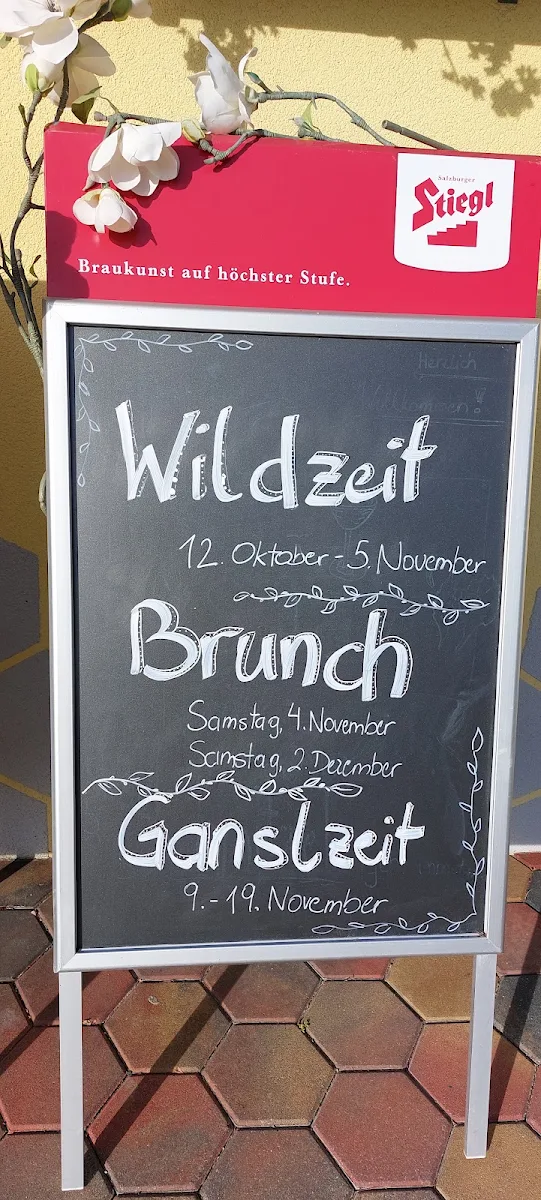 Salzburger
Stiegl
Braukunst auf höchster Stufe.
Herzlich
Willkommen!
Wildzeit
12. Oktober - 5. November
Brunch
Samstag, 4. November
Samstag, 2. Dezember
Ganslzeit
9. - 19. November